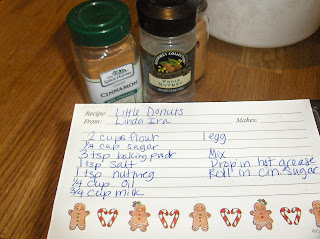 The Spice Hunter
CINNAMON
Recipe: Little Donuts
From: Linda Ira
Makes:
2 cups flour
1/4 cup sugar
3 tsp baking powdr
1 tsp salt
1 tsp nutmeg
1/4 cup oil
3/4 cup milk
1 egg
Mix
Drop in hot grease
Roll in cin. sugar